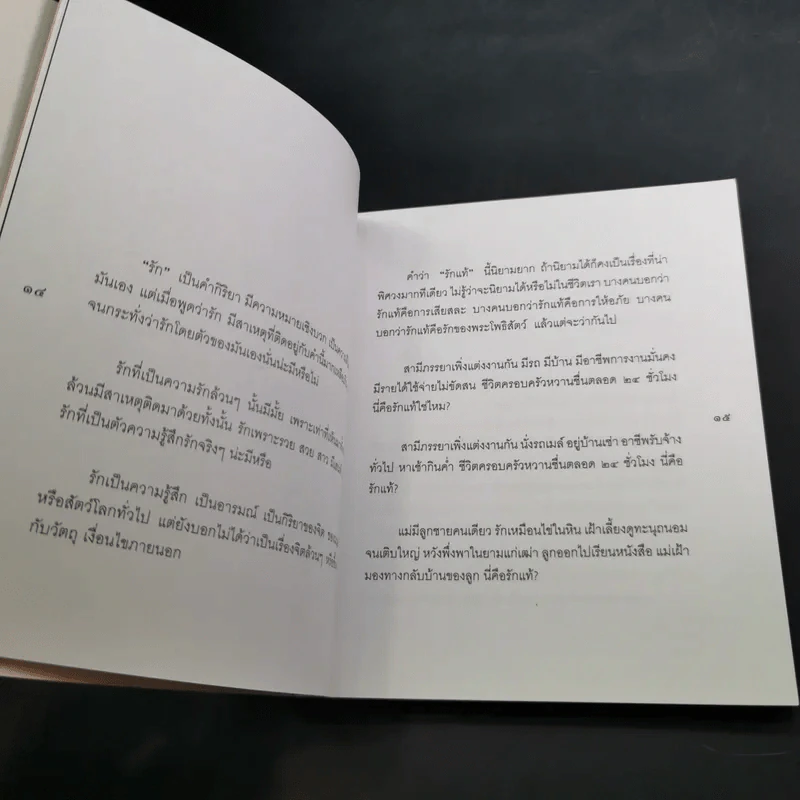 ๑๔
"รัก" เป็นคำกิริยา มีความหมายเชิงบวก
มันเอง แต่เมื่อพูดว่ารัก มีสาเหตุที่ติดอยู่กับคำนี้
จนกระทั่งว่ารักโดยตัวของมันเองนั่นน่ะมีหรือไม่
รักที่เป็นความรักล้วนๆ นั้นมีมั้ย เพราะเท่าที่
ล้วนมีสาเหตุติดมาด้วยทั้งนั้น รักเพราะรวย สวย สาว
รักที่เป็นตัวความรู้สึกรักจริงๆ น่ะมีหรือ
รักเป็นความรู้สึก เป็นอารมณ์ เป็นกิริยาของจิต
หรือสัตว์โลกทั่วไป แต่ยังบอกไม่ได้ว่าเป็นเรื่องจิตล้วนๆ
กับวัตถุ เงื่อนไขภายนอก
คำว่า "รักแท้" นี้นิยามยาก ถ้านิยามได้ก็คงเป็นเรื่องที่น่า
พิศวงมากทีเดียว ไม่รู้ว่าจะนิยามได้หรือไม่ในชีวิตเรา บางคนบอกว่า
รักแท้คือการเสียสละ บางคนบอกว่ารักแท้คือการให้อภัย บางคน
บอกว่ารักแท้คือรักของพระโพธิสัตว์ แล้วแต่จะว่ากันไป
สามีภรรยาเพิ่งแต่งงานกัน มีรถ มีบ้าน มีอาชีพการงานมั่นคง
มีรายได้ใช้จ่ายไม่ขัดสน ชีวิตครอบครัวหวานชื่นตลอด ๒๔ ชั่วโมง
นี่คือรักแท้ใช่ไหม?
๑๕
สามีภรรยาเพิ่งแต่งงานกัน นั่งรถเมล์ อยู่บ้านเช่า อาชีพรับจ้าง
ทั่วไป หาเช้ากินค่ำ ชีวิตครอบครัวหวานชื่นตลอด ๒๔ ชั่วโมง นี่คือ
รักแท้?
แม่มีลูกชายคนเดียว รักเหมือนไข่ในหิน เฝ้าเลี้ยงดูทะนุถนอม
จนเติบใหญ่ หวังพึ่งพาในยามแก่เฒ่า ลูกออกไปเรียนหนังสือ แม่เฝ้า
มองทางกลับบ้านของลูก นี่คือรักแท้?